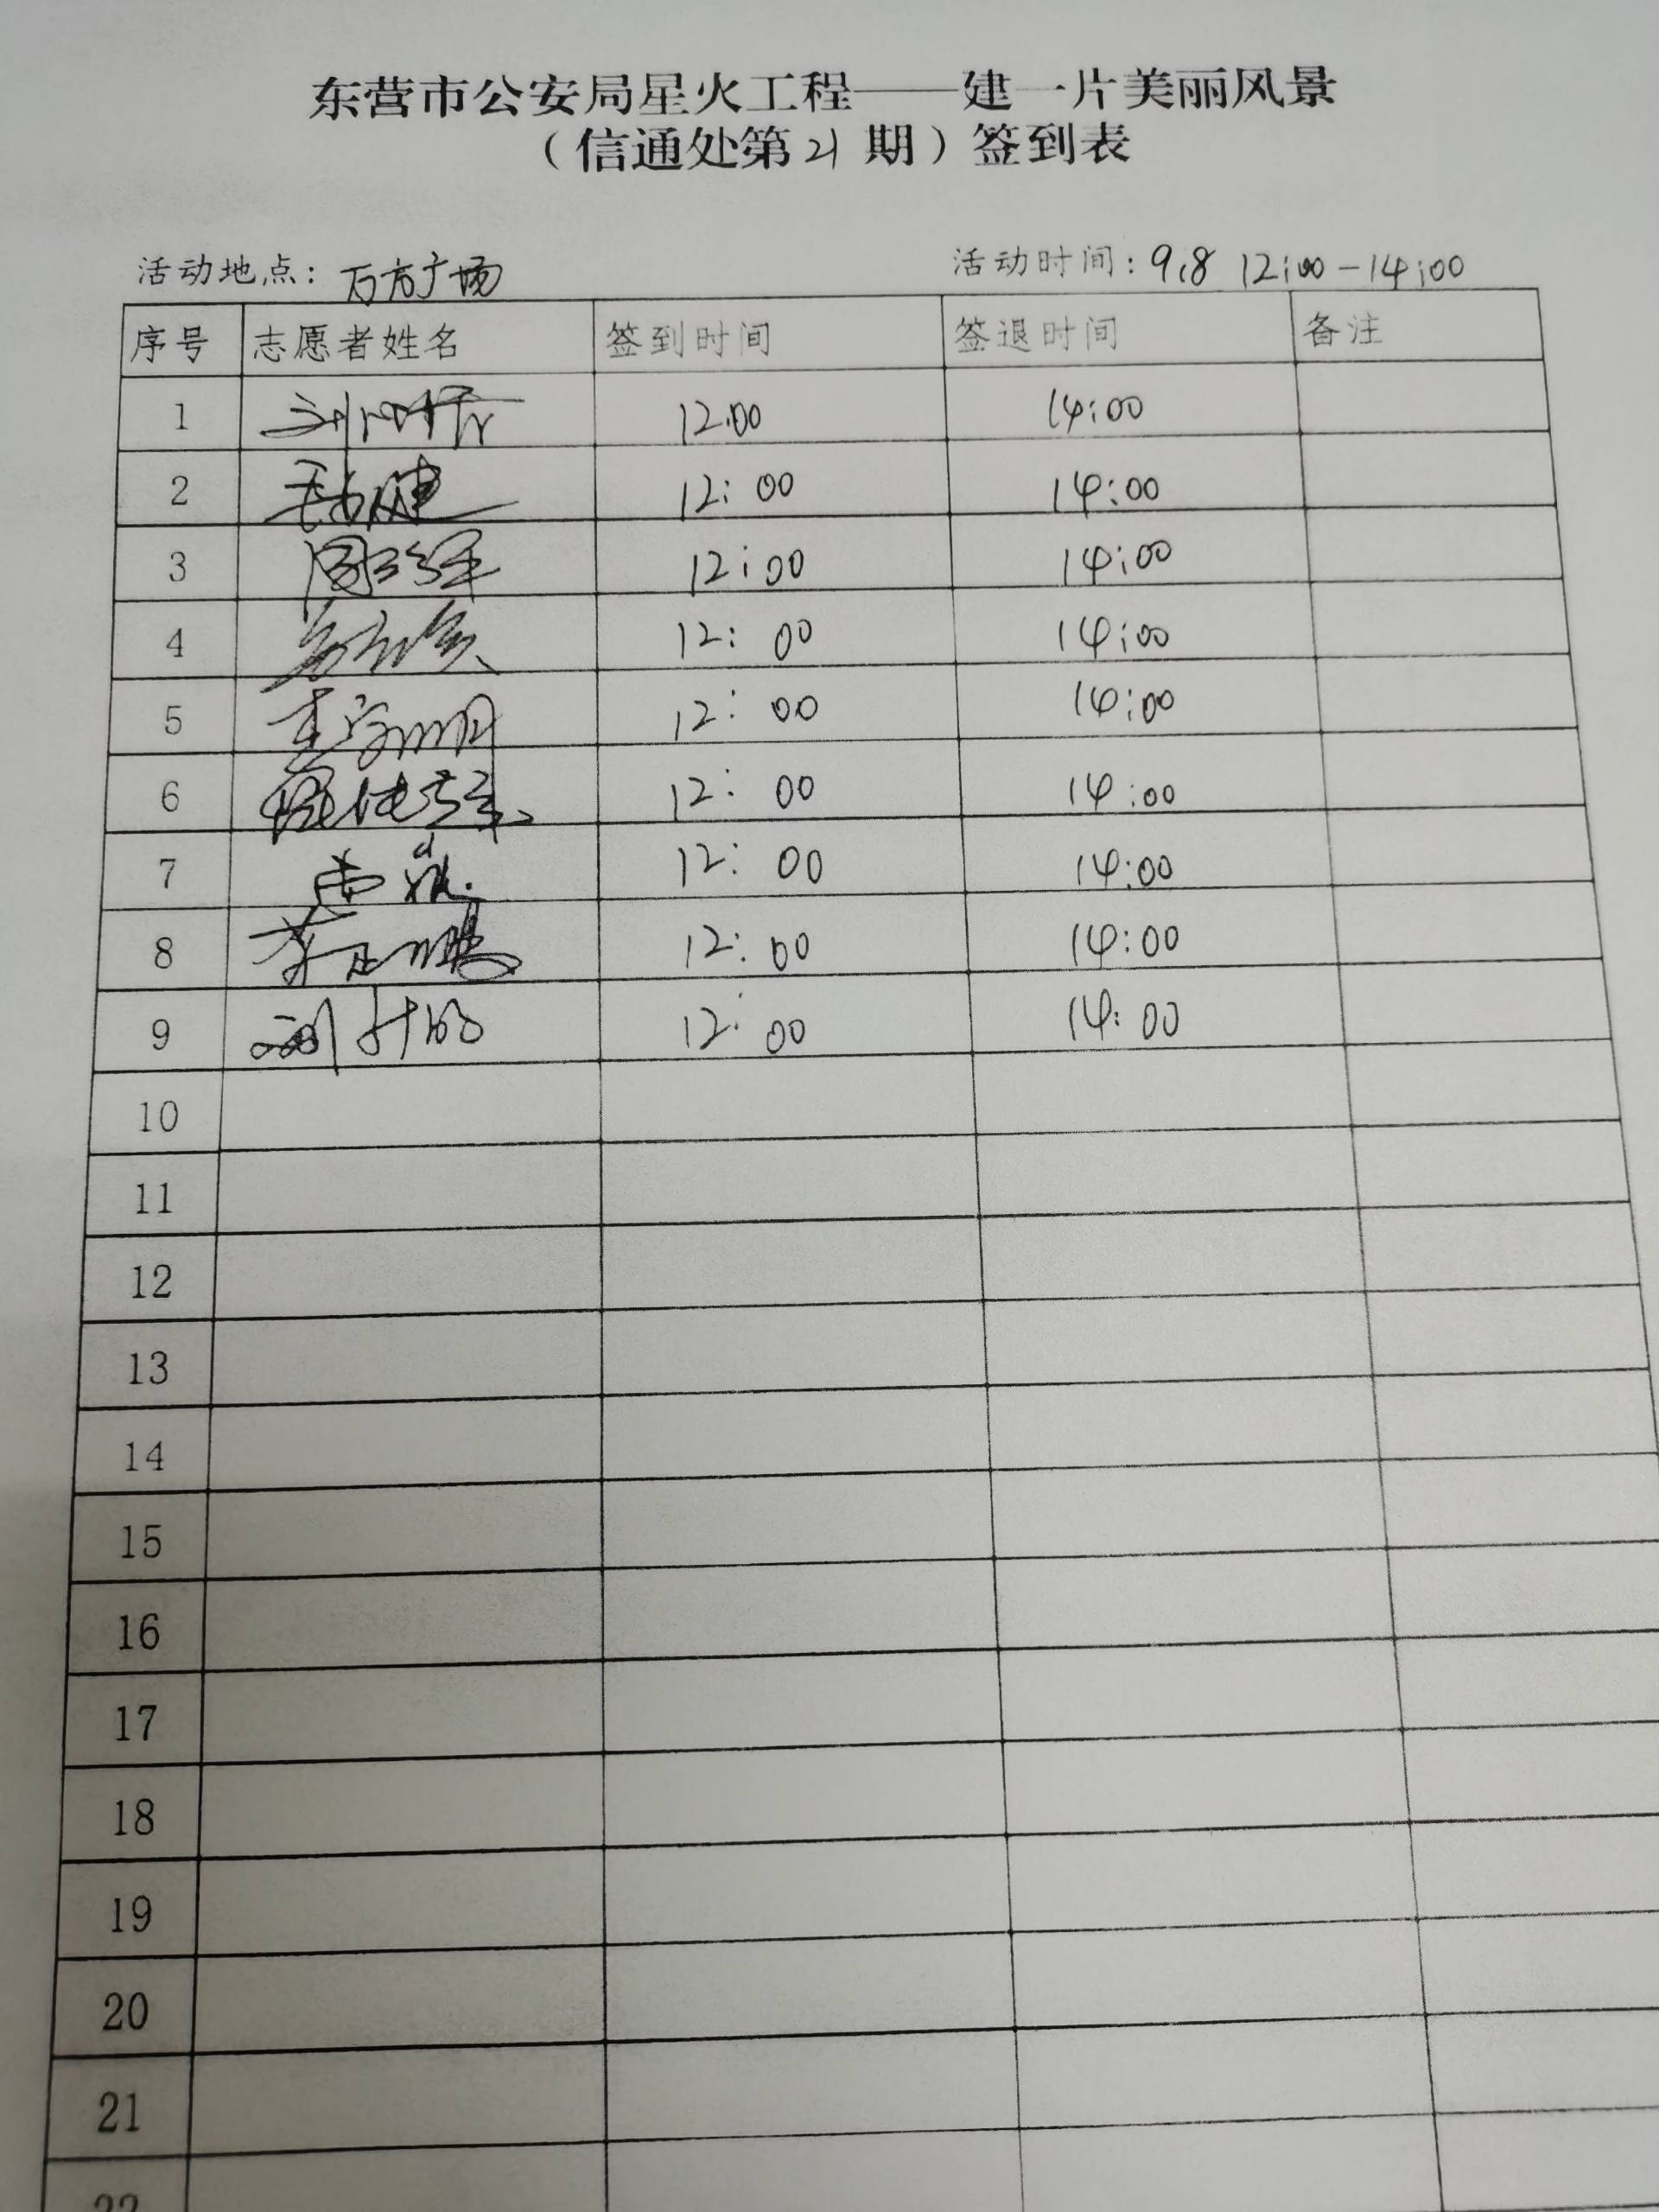 东营市公安局星火工程——建一片美丽风景
（信通处第21期）签到表
活动地点：万方广场
活动时间：9.8 12:00-14:00
序号 志愿者姓名 签到时间 签退时间 备注
1 12:00 14:00
2 12:00 14:00
3 12:00 14:00
4 12:00 14:00
5 12:00 14:00
6 12:00 14:00
7 12:00 14:00
8 12:00 14:00
9 12:00 14:00
10
11
12
13
14
15
16
17
18
19
20
21
22